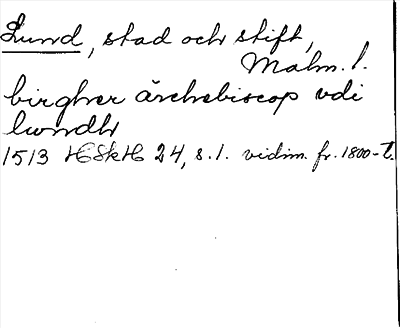 Lund, stad och stift,
Malm. l.
birgher ärchebiscop vdi
lwndh
1513 HSkH 24, s. 1. vidim. fr. 1800-t.